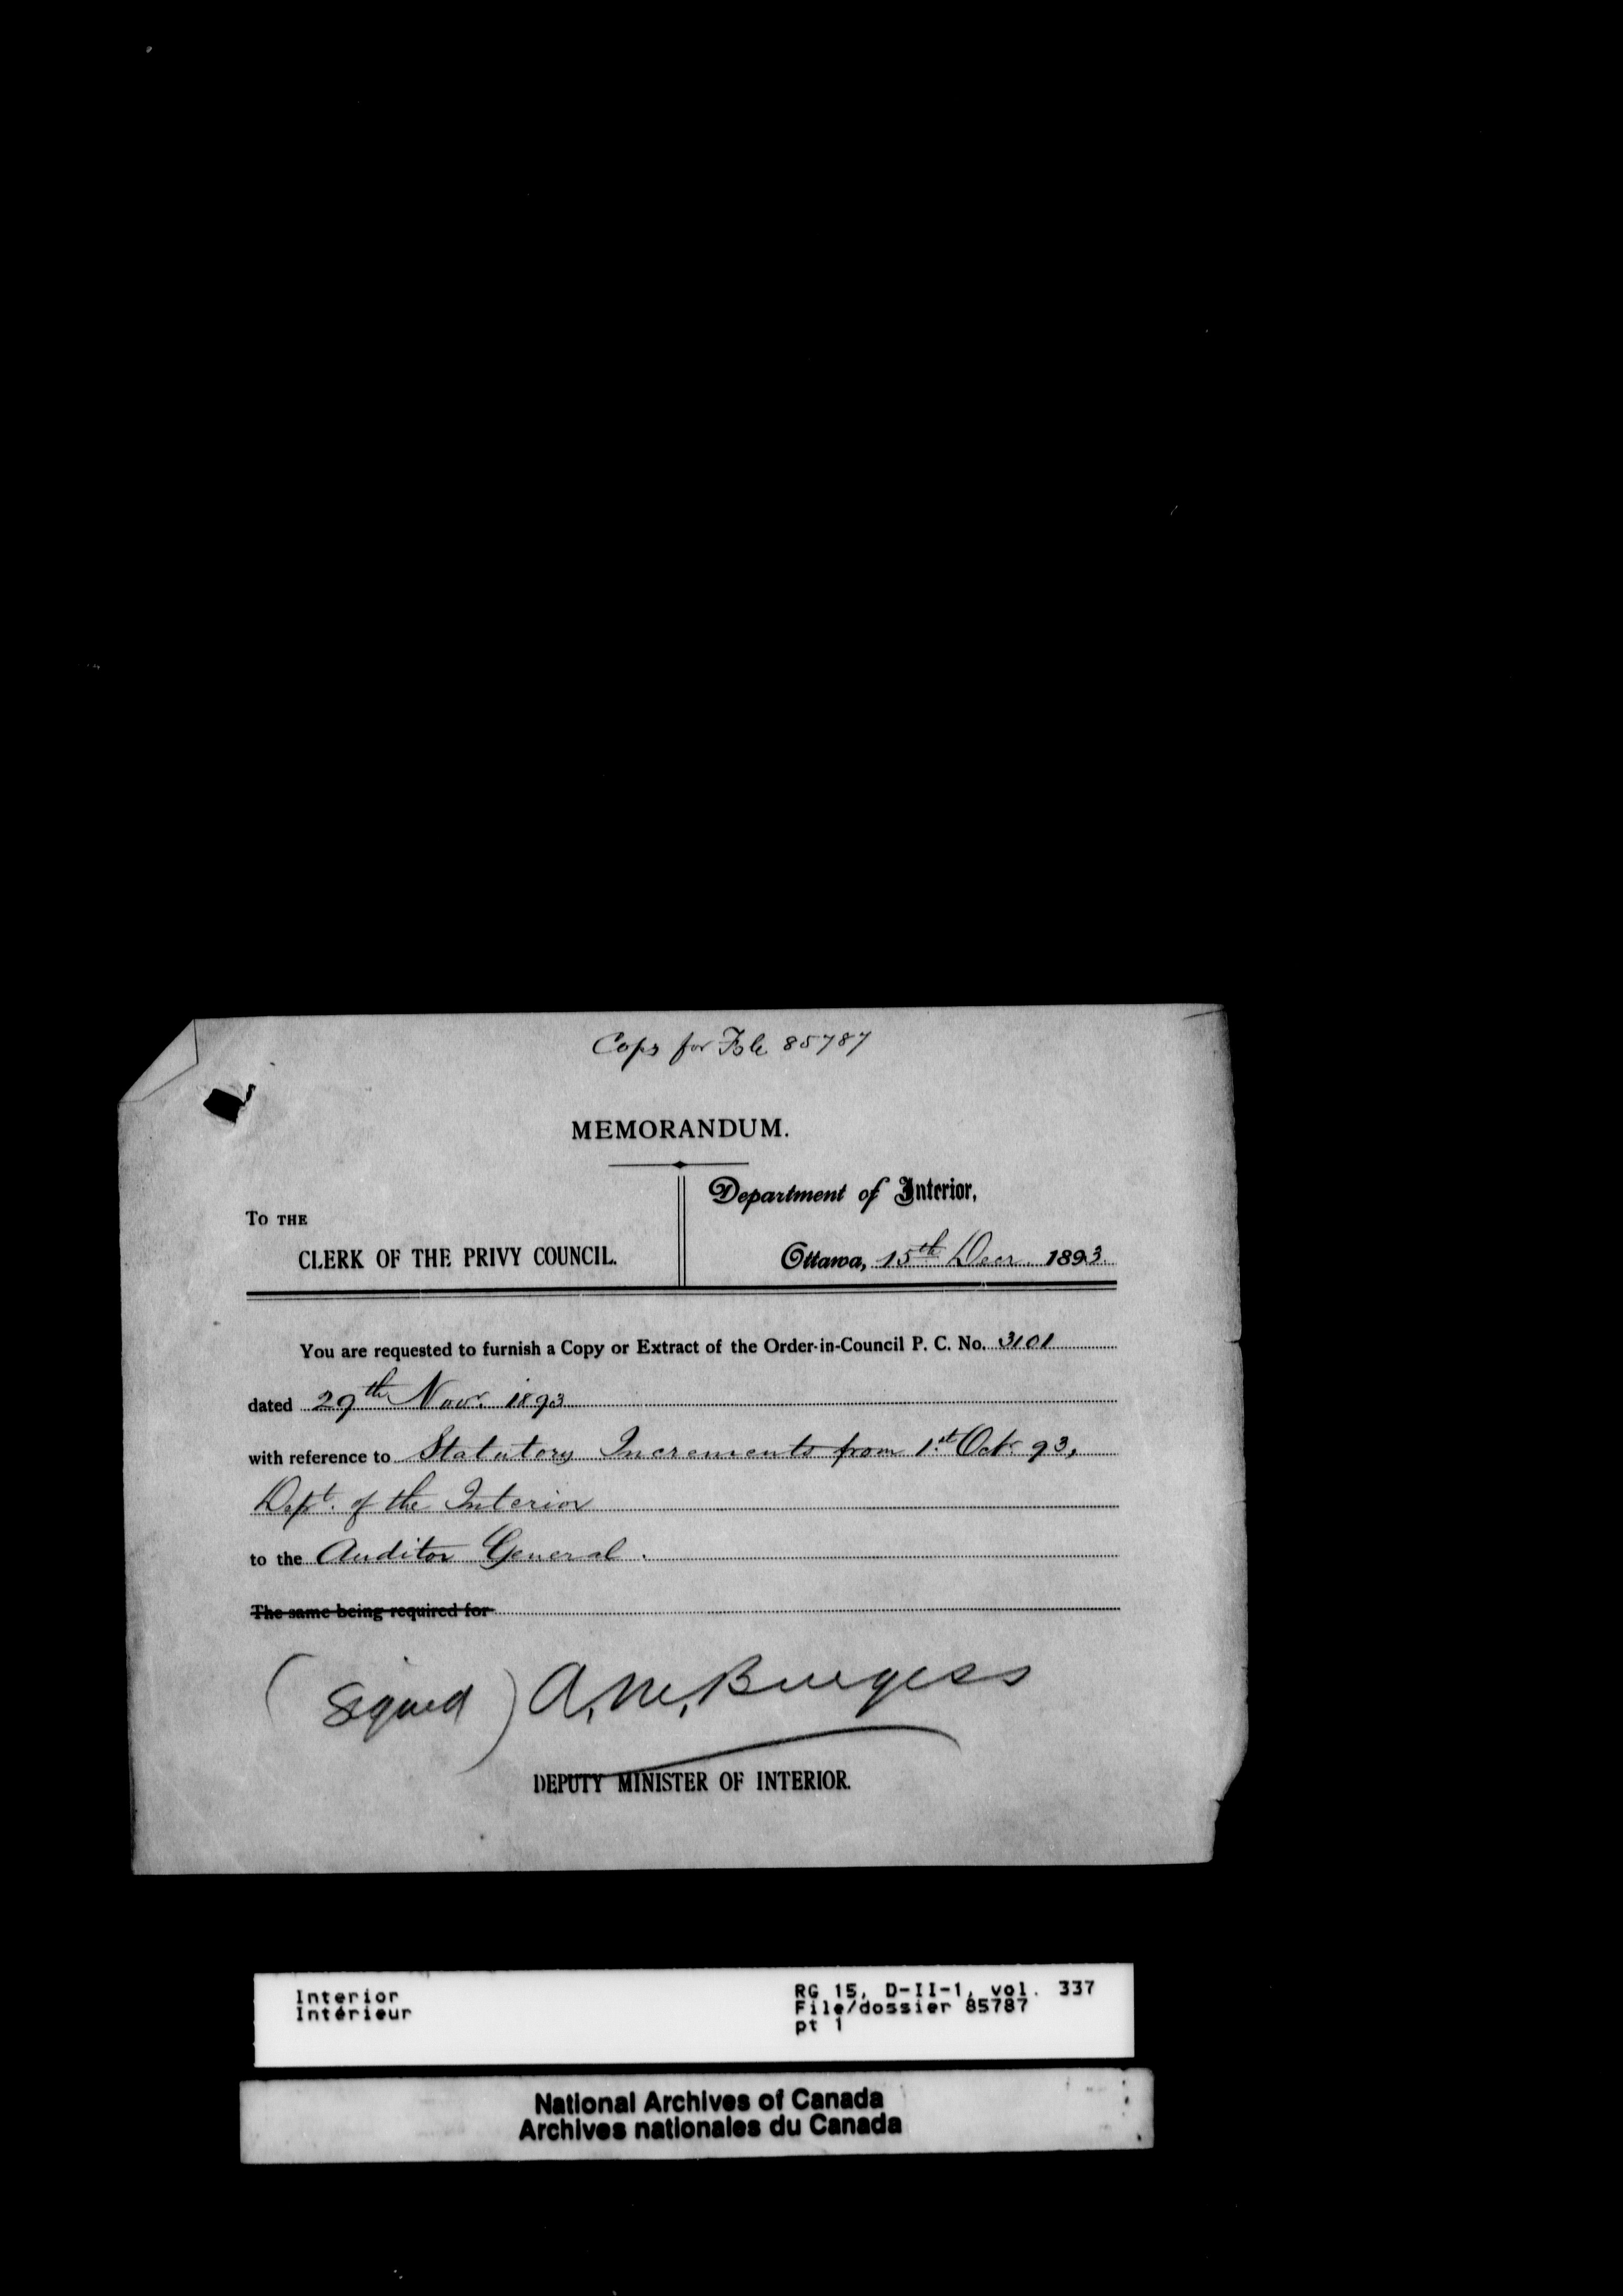 Copy for File 85787
MEMORANDUM.
Department of Interior,
To THE
CLERK OF THE PRIVY COUNCIL.
Ottawa, 15th Decr. 1893.
You are requested to furnish a Copy or Extract of the Order-in-Council P. C. No. 3101
dated 29th Novr. 1893
with reference to Statutory Increments from 1st Octr 93,
Dept. of the Interior
to the Auditor General.
The same being required for
(Signed) A. M. Burgess
DEPUTY MINISTER OF INTERIOR.
Interior
Intérieur
RG 15, D-II-1, vol. 337
File/dossier 85787
pt 1
National Archives of Canada
Archives nationales du Canada